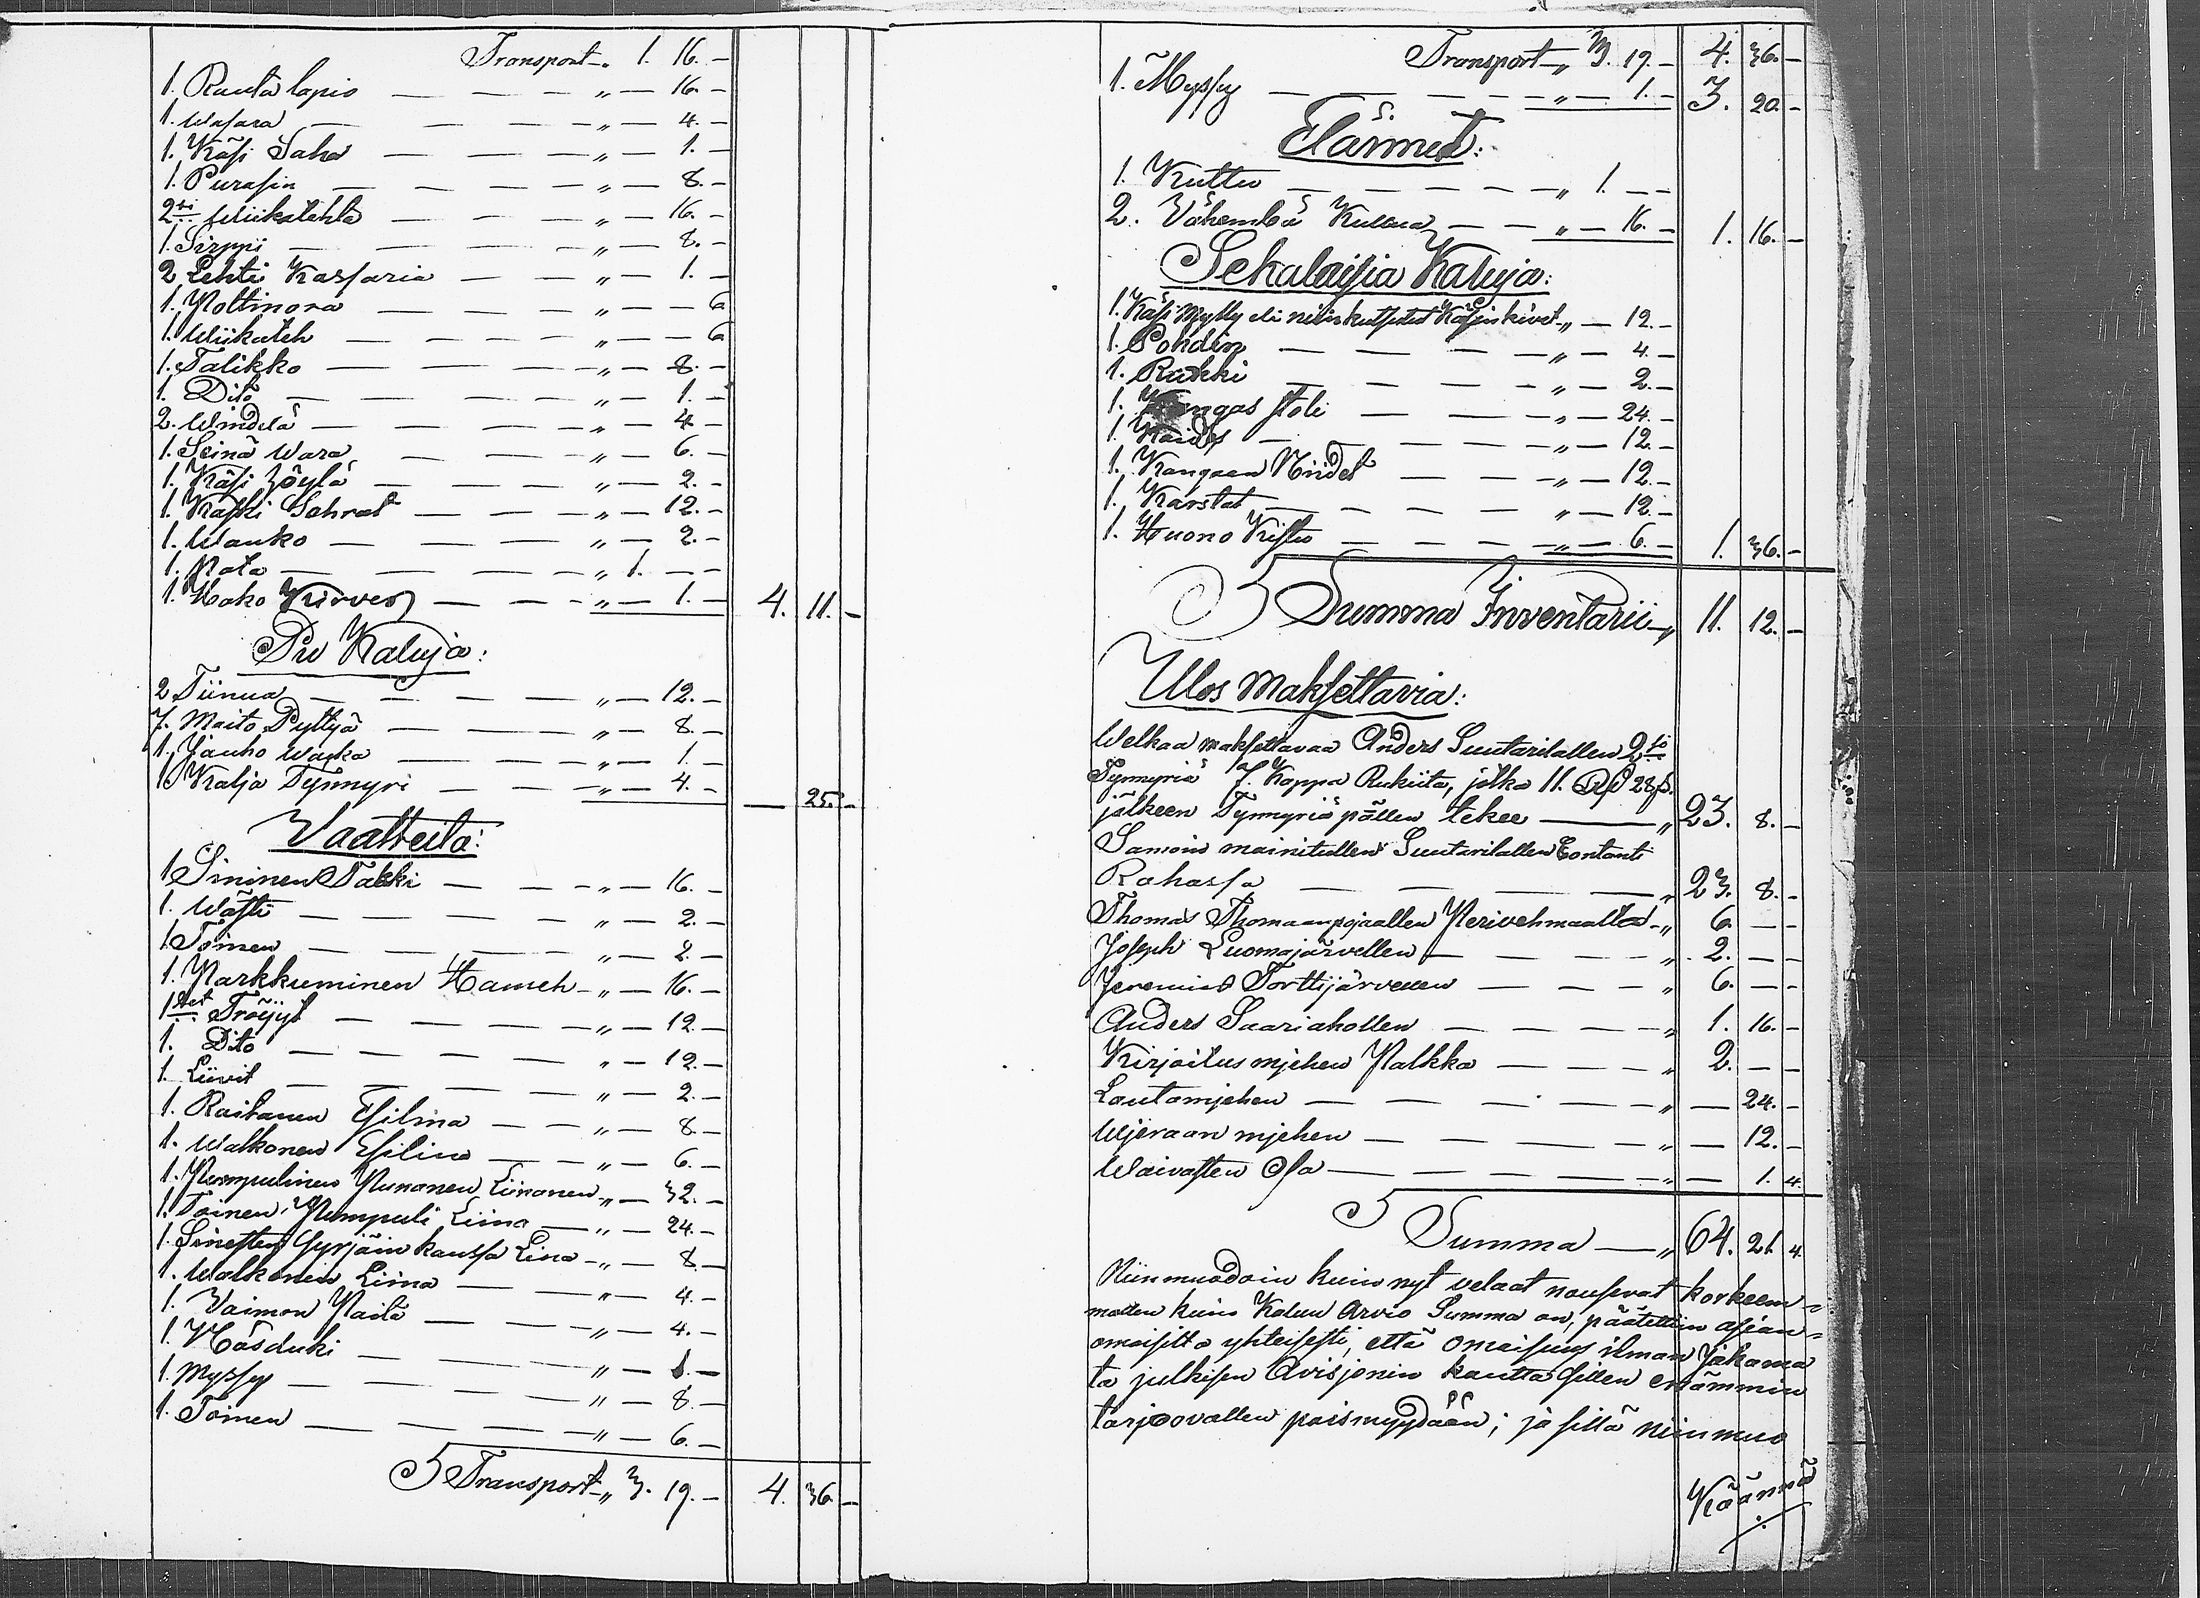 Transport „ 1. 16. –
1. Rauta lapio — „ — 16. –
1. Wasara — „ — 4. –
1. Käsi Saha — „ — 1. –
1. Purasin — „ — 8. –
2:si Wiikatehta — „ — 16. –
1. Sirppi — „ — 8. –
2 Lehti Kassaria — „ — 1. –
1. Noltinora — „ — – 6
1. Wiikateh — „ — – 6
1. Talikko — „ — 8. –
1. Dito — „ — 1. –
2. Windelä — „ — 4 –
1. Seinä Wara — „ — 6. –
1. Käsi Höylä — „ — 2. –
1. Kaski Sahrat — „ — 12. –
1. Wanko — „ — 2. –
1. Nata — „ 1. — –
1. Hako Kirves — „ — 1. – 4. 11. –
Pu Kaluja:
2 Tiinua — „ — 12. –
7. Maito Pyttyä — „ — 8. –
1. Jauho Wacka — „ — 1. –
1. Kalja Tynnyri — „ — 4. – — 25. –
Vaatteita:
1 Sininen Takki — „ — 16. –
1. Wästi — „ — 2. –
1 Toinen — „ — 2. –
1. Narkkuminen Hameh — „ — 16. –
1:set Tröijyt — „ — 12. –
1. Dito — „ — 12. –
1. Liivit — „ — 2. –
1. Raitanen Esilina — „ — 8. –
1. Walkonen Esilina — „ — 6. –
1. Numpulinen Nunanen Liinanen „ — 32. –
1. Toinen Numpuli Liina — „ — 24. –
1. Sinesten Syrjäin kanssa Lina — „ — 8. –
1. Walkonen Liina — „ — 4. –
1. Vaimon Paita — „ — 4. –
1. Näsduki — „ — 6. –
1. Myssy — „ — 8. –
1. Toinen — „ — 6. –
Transport „ 3. 19. – 4. 36. –
Transport „ 3. 19. – 4. 36. –
1. Myssy — „ — 1. – 3. 20. –
Elaimet:
1. Kuttu — „ 1. — –
2. Vähembä Kuttua — „ — 16. – 1. 16. –
Sekalaisia Kaluja:
1. Käsi Mylly eli niin kutsutut Käsinkivet „ — 12. –
1. Pohdin — „ — 4. –
1. Rukki — „ — 2. –
1. Kangas stoli — „ — 24. –
1. Kaides — „ — 12. –
1. Kangaan Niidet — „ — 12. –
1. Karstat — „ — 12. –
1. Huono Kistu — „ — 6. – 1. 36. –
Summa Inventarii „ 11. 12. –
Ulos maksettavia:
Welkaa maksettavaa Anders Suutarilallen 2:si
Tynnyriä 7. Kappa Rukiita, jotka 11. Rd 28 s.
jälkeen Tynnyriä pällen tekee — „ 23. 8. –
Samoin mainitullen Suutarilallen Contanti
Rahassa — „ 23. 8. –
Thomas Thomaanpojaallen Nerivehmaalta „ 6. – –
Joseph Luomajärvellen — „ 2. – –
Jeremias Torttijärvellen — „ 6. – –
Anders Saariahollen — „ 1. 16. –
Kirjoitus mjehen Palkka — „ 2. – –
Lautamjehen — „ — 24. –
Wjeraan mjehen — „ — 12. –
Waivasten Osa — „ — 1. 4.
Summa — „ 64. 21. 4.
Niinmuodoin kuin nyt velaat nousevat korkeem=
mallen kuin Kalun Arvio Summa on, päätettiin asian=
omaisilta yhteisesti, että Omaisuus ilman Jakama
ta julkisen Avisjonin kautta sillen enämmin
tarjoovallen poismyydään; ja sillä niin muo
Käännä